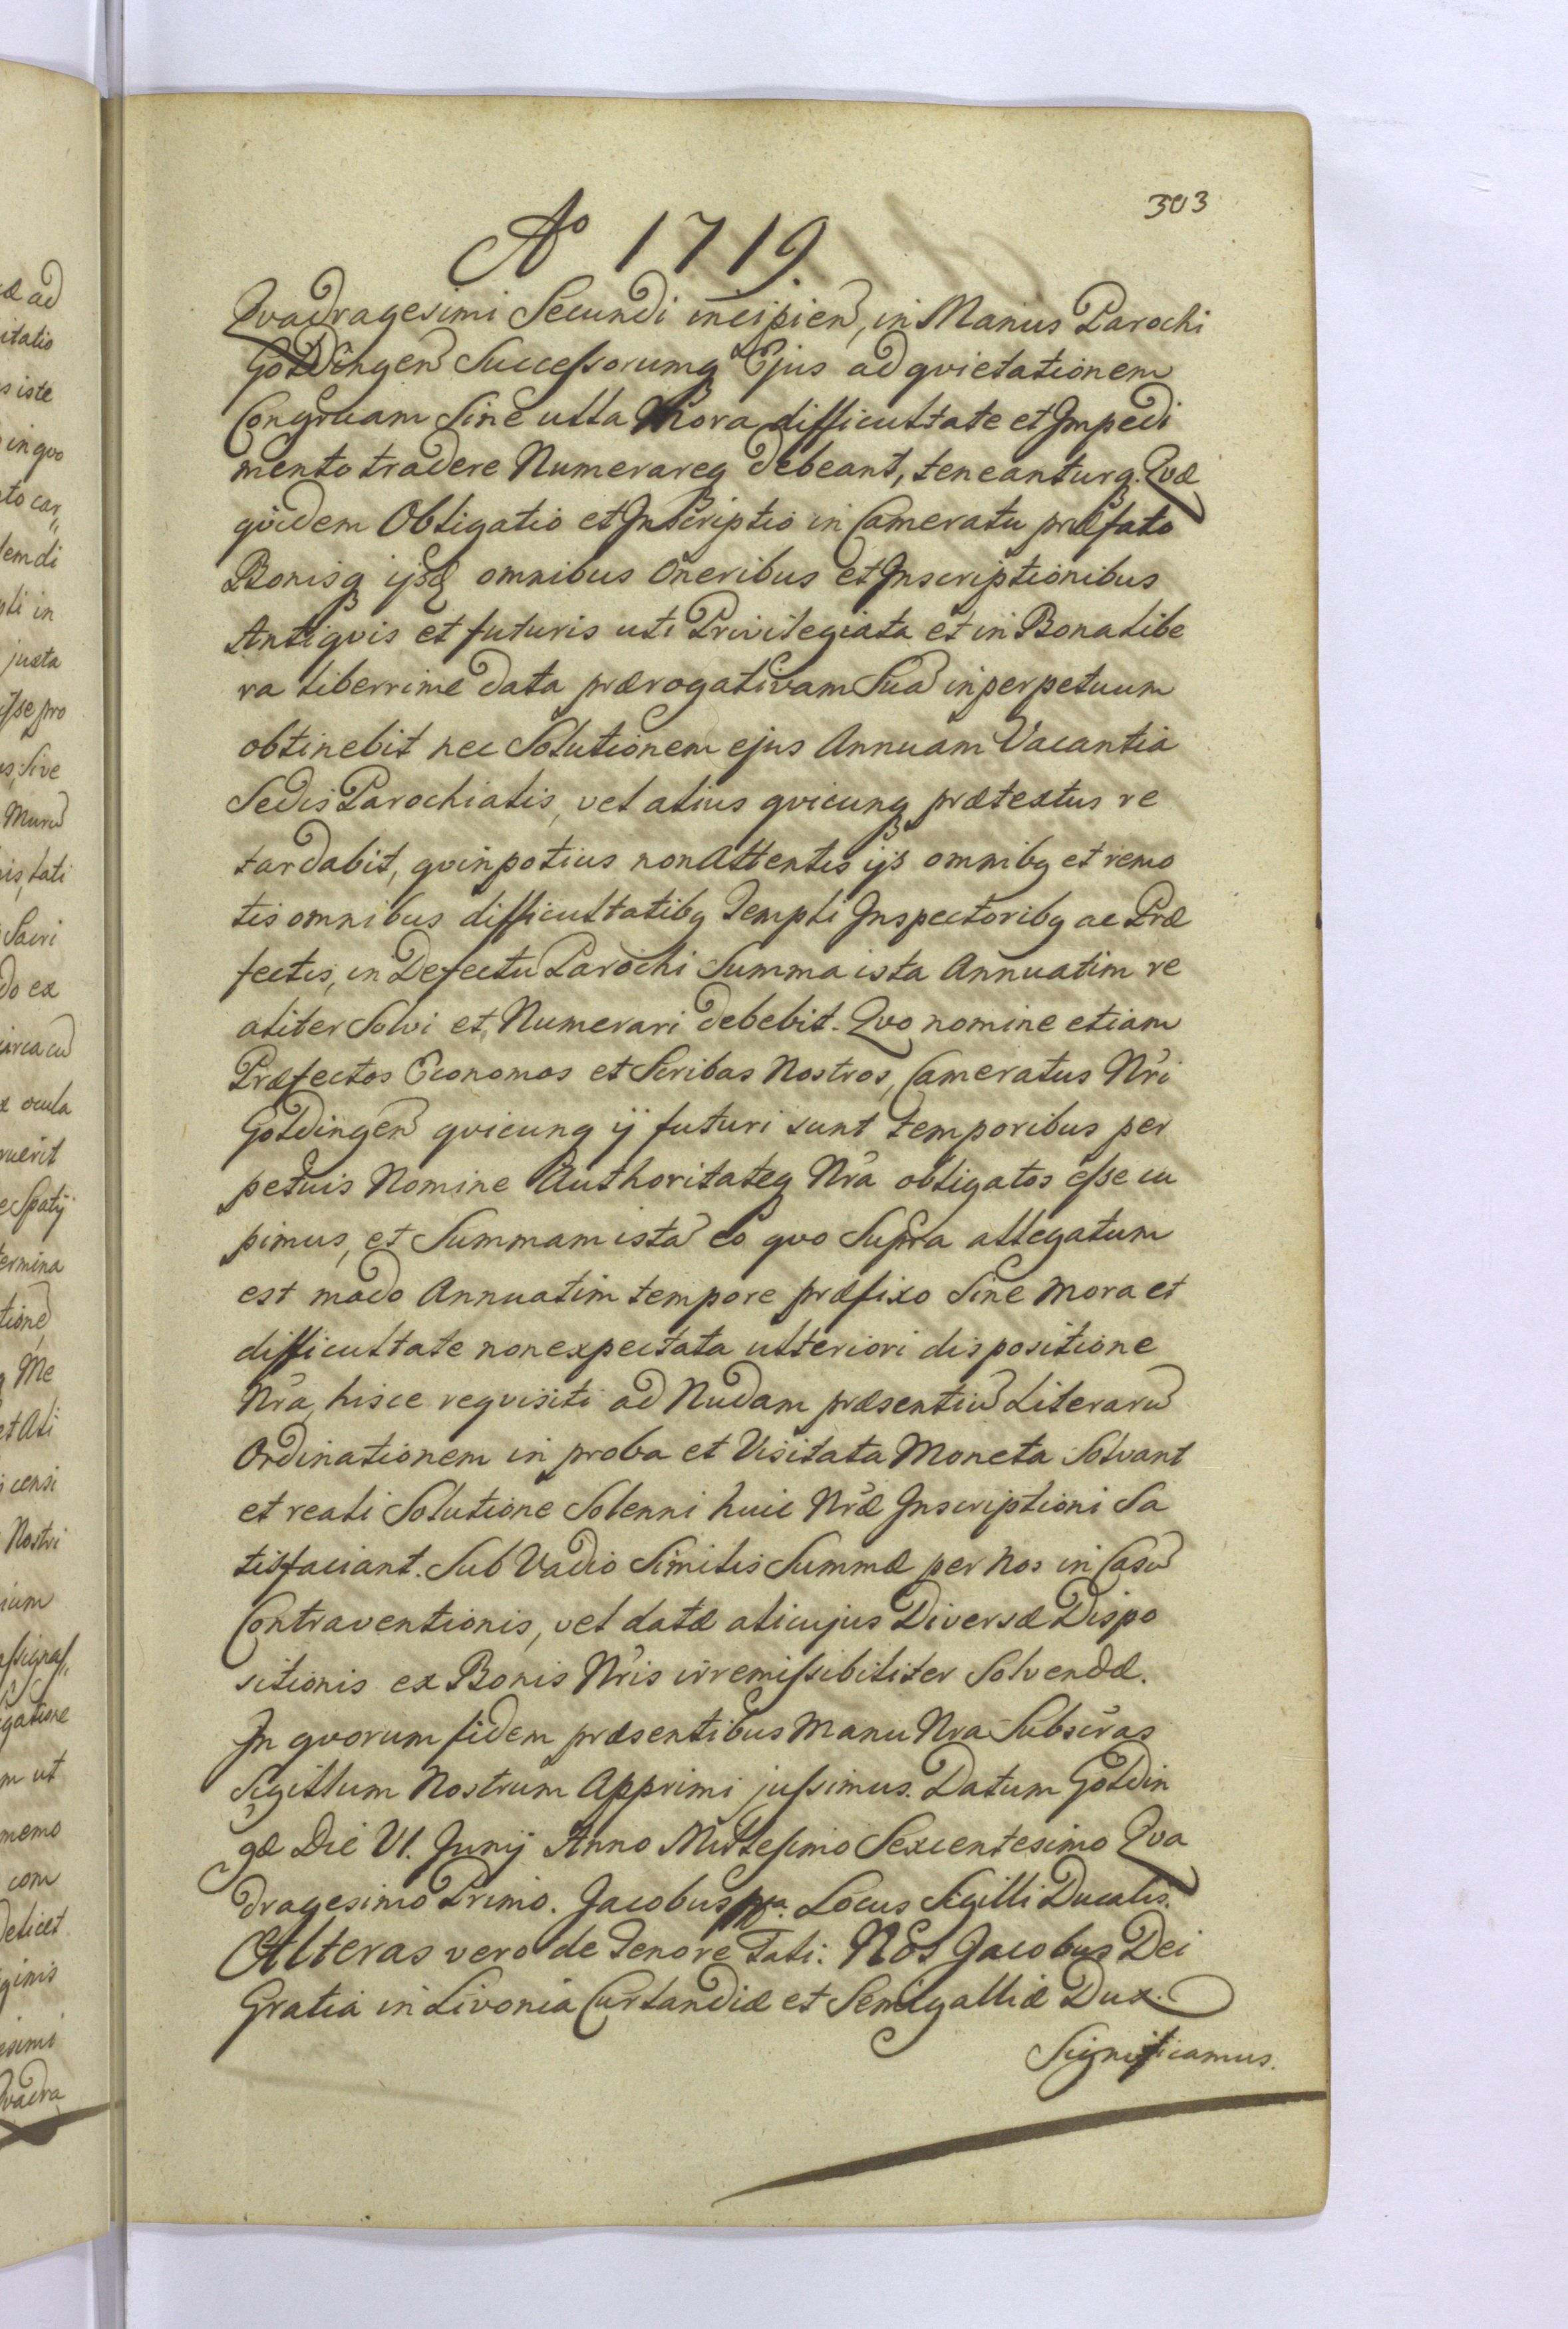 303
Ao 1719.
Qvadragesimi Secundi incipien, in Manus Parochi
Goldingen Successorumq Ejus ad qvietationem
Congruam Sine ulla Mora difficultate et Impedi
mento tradere Numerareq debeant, teneanturq. Qvæ
qvidem Obligatio et Inscriptio in Cameratu præfato
Bonisq ijsq omnibus Oneribus et Inscriptionibus
Antiqvis et futuris uti Privilegiata et in Bona libe
ra liberrime data prærogativam Sua in perpetuum
obtinebit nec Solutionem ejus Annuam Vacantia
Sedis Parochialis, vel alius qvicunq prætextus re
tardabit, qvin potius non Attentis ijs omnibq et remo
tis omnibus difficultatibq Templi Inspectoribq ac Præ
fectis, in Defectu Parochi Summa ista Annuatim re
aliter Solvi et Numerari debebit. Qvo nomine etiam
Præfectos Economos et Scribas Nostros, Cameratus Nri
Goldingen qvicunq ij futuri sunt temporibus per
petuis Nomine Authoritateq Nra obligatos esse cu
pimus, et Summam ista eo qvo Supra allegatum
est modo Annuatim tempore præfixo Sine Mora et
difficultate non expectata ulteriori dispositione
Nra, hisce reqvisiti ad Nudam præsentiu Literaru
Ordinationem in proba et Visitata Moneta Solvant
et reali Solutione Solenni huic Nræ Inscriptioni Sa
tisfaciant. Sub Vadio Similis Summæ per Nos in Casu
Contraventionis, vel datæ alicujus Diversæ Dispo
sitionis ex Bonis Nris irremissibiliter Solvendæ.
In qvorum fidem præsentibus Manu Nra Subscras
Sigillum Nostrum Apprimi jussimus. Datum Goldin
gæ Die VI. Junij Anno Millesimo Sexcentesimo Qva
dragesimo Primo. Jacobus mpa. Locus Sigilli Ducalis.
Alteras vero de Tenore Tali: Nos Jacobus Dei
Gratia in Livonia Curlandiæ et Semigalliæ Dux.
Significamus.